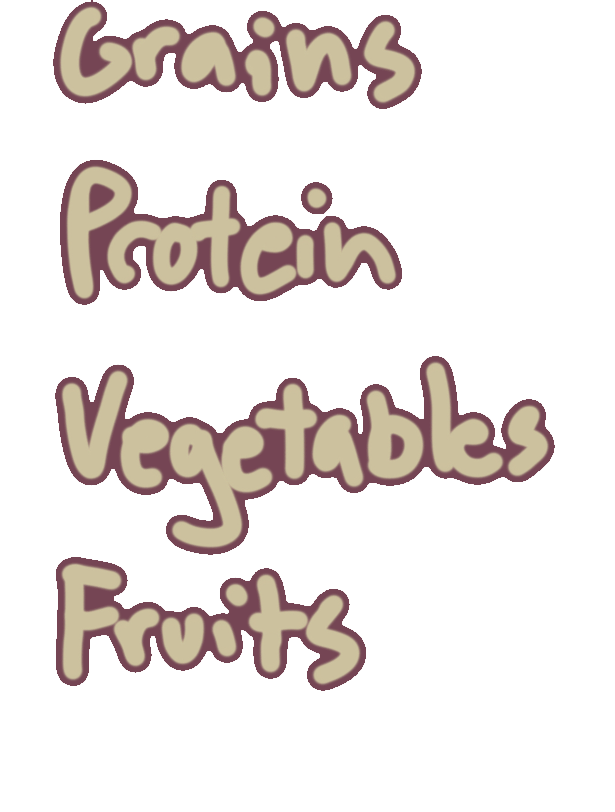 Grains
Protein
Vegetables
Fruits